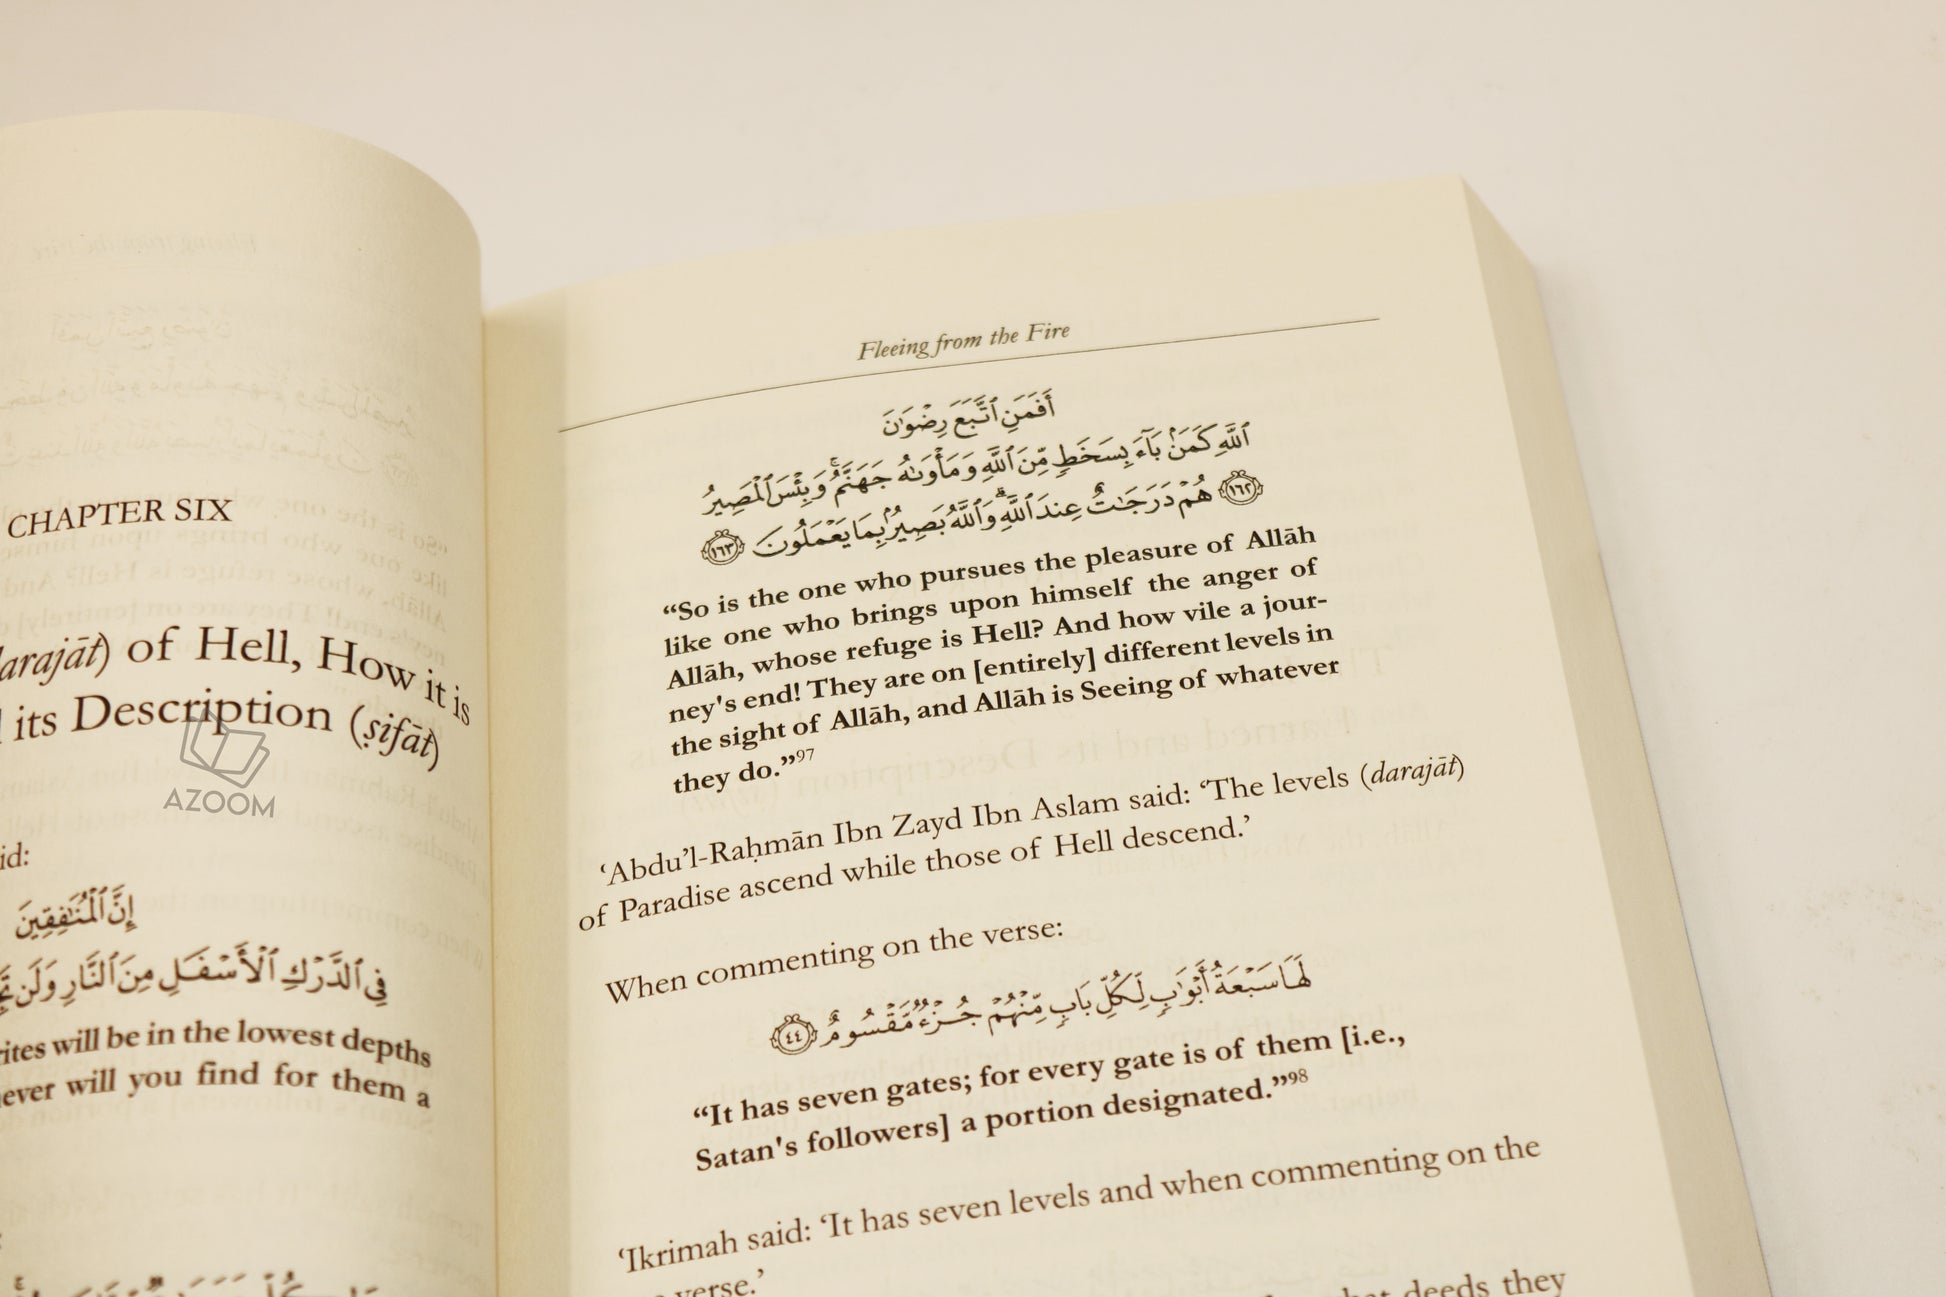 CHAPTER SIX
darajāt) of Hell, How it is
its Description (ṣifāt)
AZOOM
إِنَّ ٱلْمُنَٰفِقِينَ
فِي ٱلدَّرْكِ ٱلْأَسْفَلِ مِنَ ٱلنَّارِ وَلَن
will be in the lowest depths
will you find for them a
Fleeing from the Fire
أَفَمَنِ ٱتَّبَعَ رِضْوَٰنَ
ٱللَّهِ كَمَنۢ بَآءَ بِسَخَطٍ مِّنَ ٱللَّهِ وَمَأْوَىٰهُ جَهَنَّمُ ۚ وَبِئْسَ ٱلْمَصِيرُ
١٦٢ هُمْ دَرَجَٰتٌ عِندَ ٱللَّهِ ۗ وَٱللَّهُ بَصِيرٌۢ بِمَا يَعْمَلُونَ ١٦٣
“So is the one who pursues the pleasure of Allāh
like one who brings upon himself the anger of
Allāh, whose refuge is Hell? And how vile a jour-
ney's end! They are on [entirely] different levels in
the sight of Allāh, and Allāh is Seeing of whatever
they do.”97
‘Abdu’l-Raḥmān Ibn Zayd Ibn Aslam said: ‘The levels (darajāt)
of Paradise ascend while those of Hell descend.’
When commenting on the verse:
لَهَا سَبْعَةُ أَبْوَٰبٍ لِّكُلِّ بَابٍ مِّنْهُمْ جُزْءٌ مَّقْسُومٌ ٤٤
“It has seven gates; for every gate is of them [i.e.,
Satan's followers] a portion designated.”98
‘Ikrimah said: ‘It has seven levels and when commenting on the
verse.’
deeds they